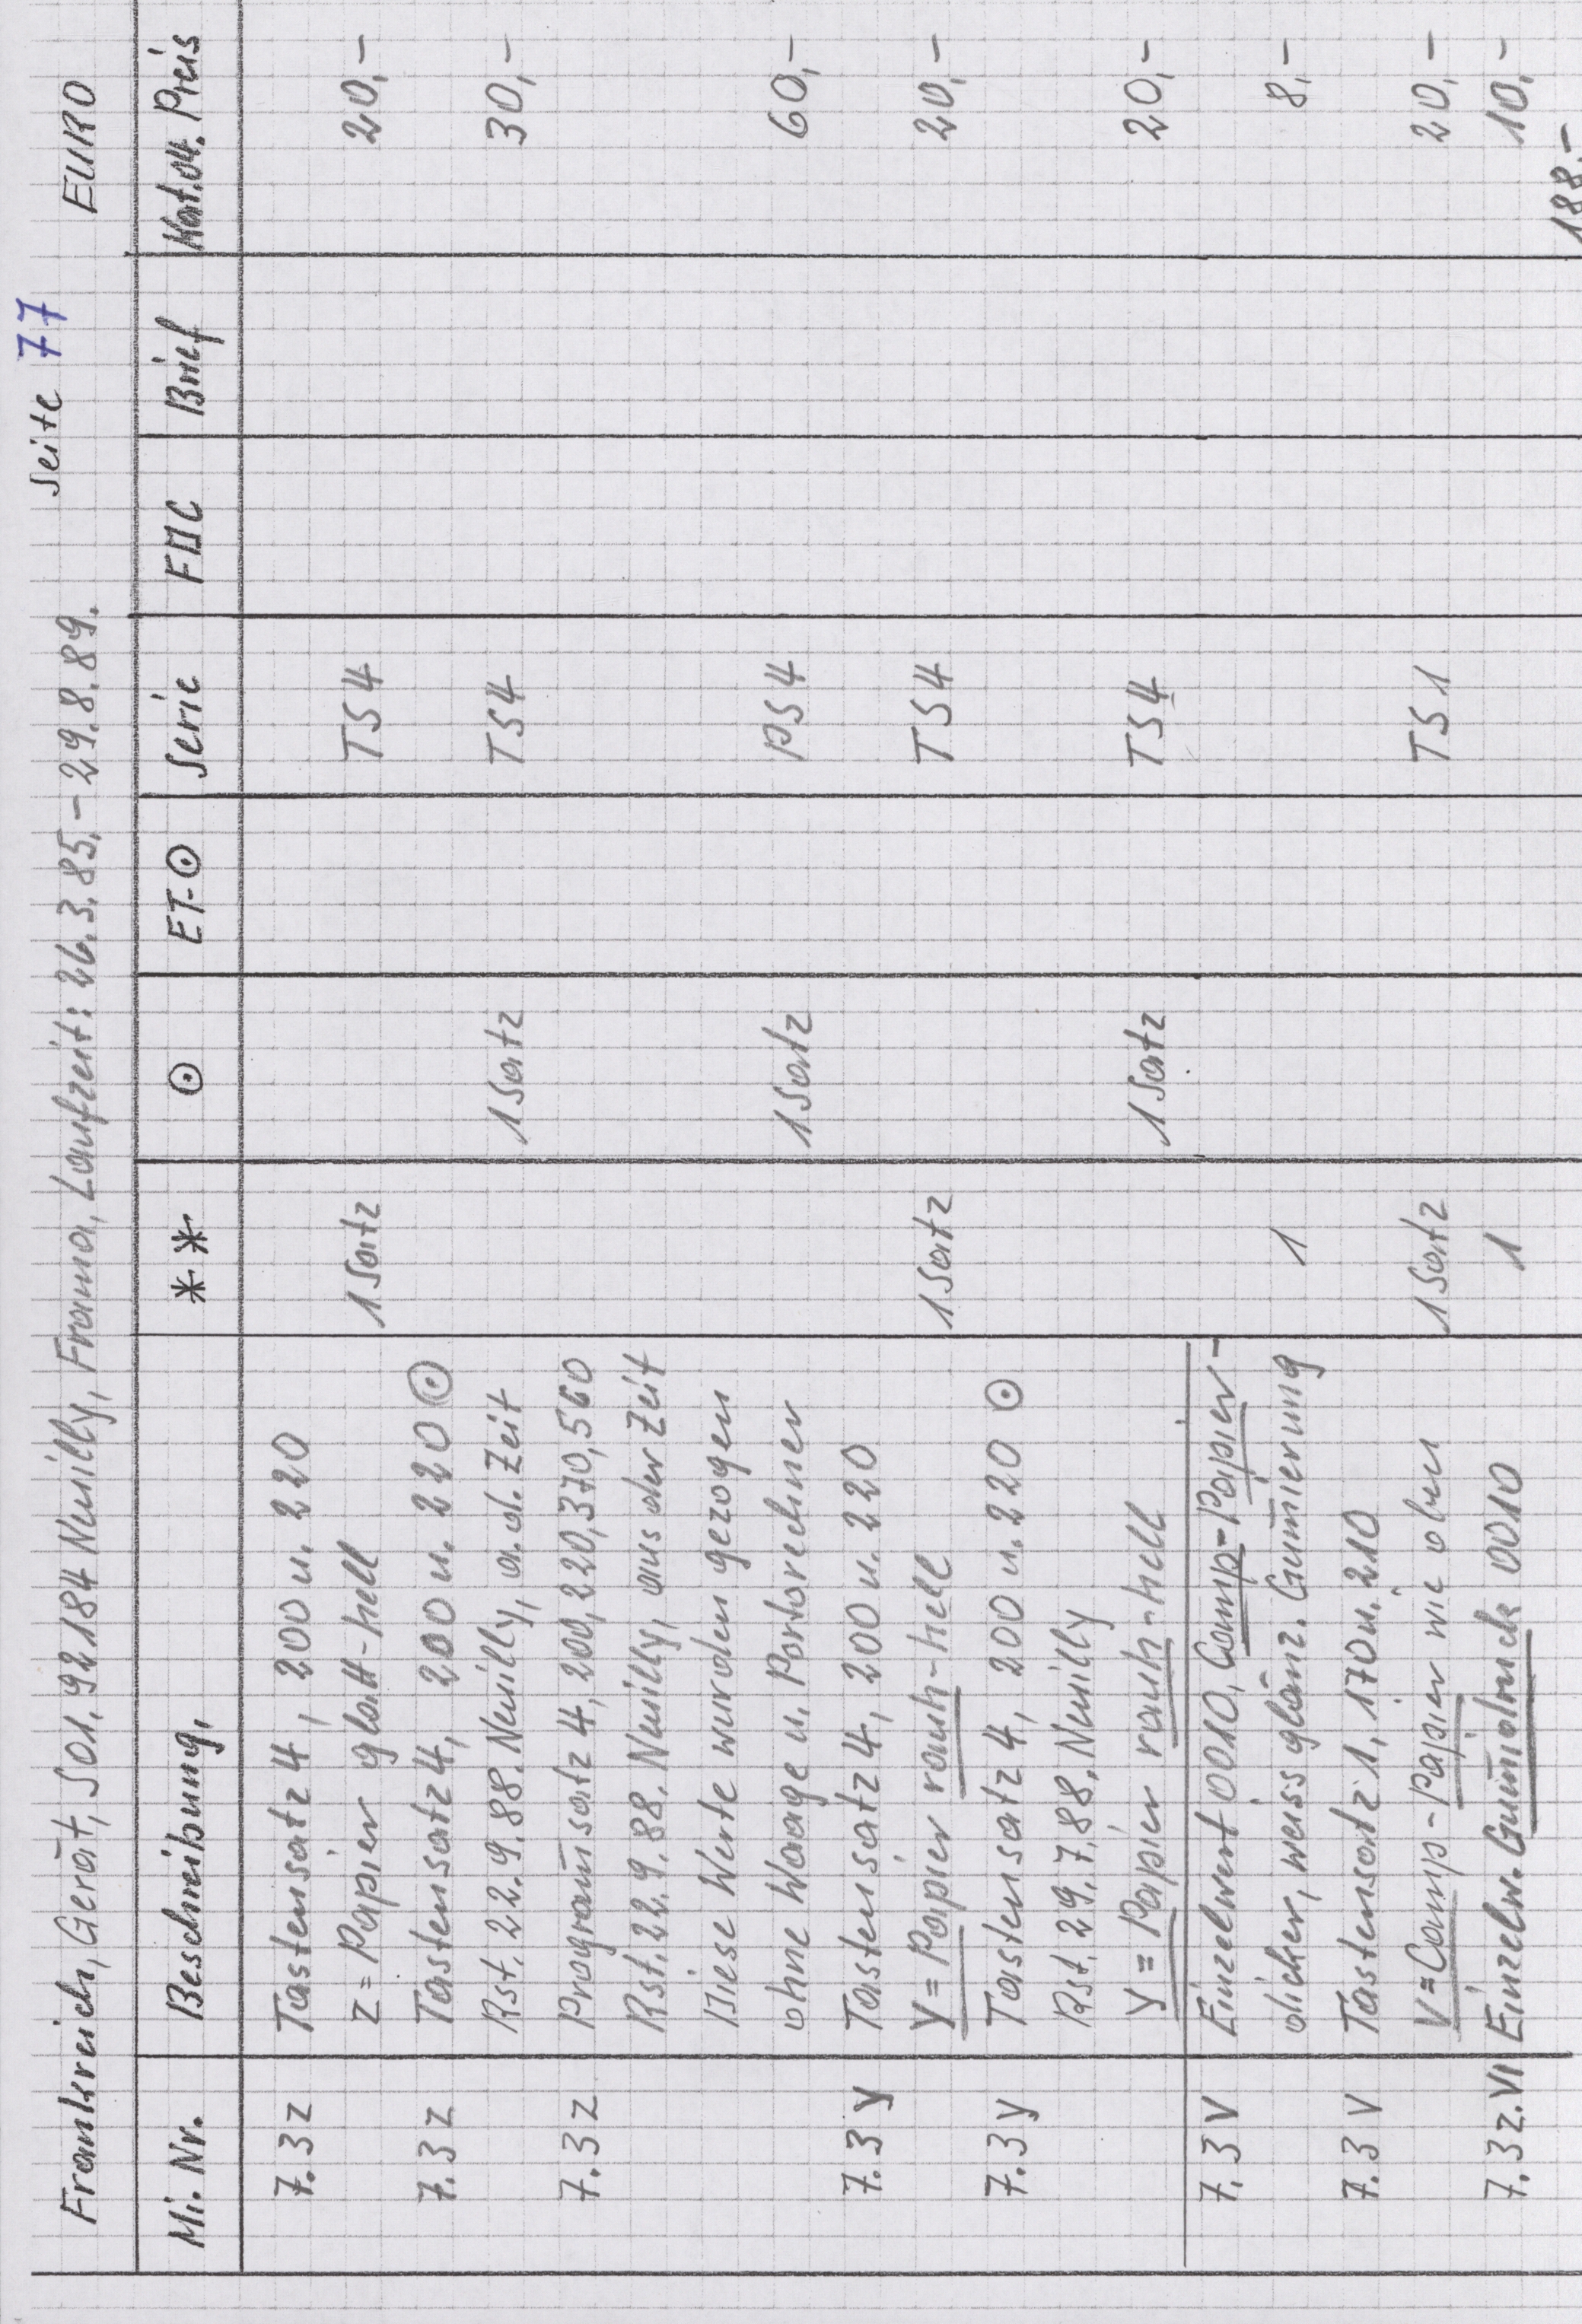 Seite 77
Frankreich, Gerät, S01, 92184 Neuilly, Frama, Laufzeit: 26.3.85.-29.8.89. EURO
Mi. Nr. Beschreibung, ** ⊙ ET-⊙ Serie FDC Brief Kat.04. Preis
7.3 z Tastensatz 4, 200 u. 220
z = Papier glatt-hell 1 Satz TS 4 20,-
7.3 z Tastensatz 4, 200 u. 220 ⊙
Rst. 22.9.88. Neuilly, a.d. Zeit 1 Satz TS4 30,-
7.3 z Program̅satz 4, 200, 220, 370, 560
Rst. 22.9.88. Neuilly, aus der Zeit
Diese Werte wurden gezogen
ohne Waage u. Portorechner 1 Satz PS 4 60,-
7.3 y Tastensatz 4, 200 u. 220
y = Papier rauh-hell 1 Satz TS 4 20,-
7.3 y Tastensatz 4, 200 u. 220 ⊙
Rst. 29.7.88, Neuilly
y = Papier rauh-hell 1 Satz TS4 20,-
7.3 V Einzelwert 0010, Camp-Papier-
dicker, weiss glänz. Gum̅ierung 1 8,-
7.3 V Tastensatz 1, 170 u. 210
V = Camp-Papier wie oben 1 Satz TS 1 20,-
7.3 z. VI Einzelw. Gum̅idruck 0010 1 10,-
188,-